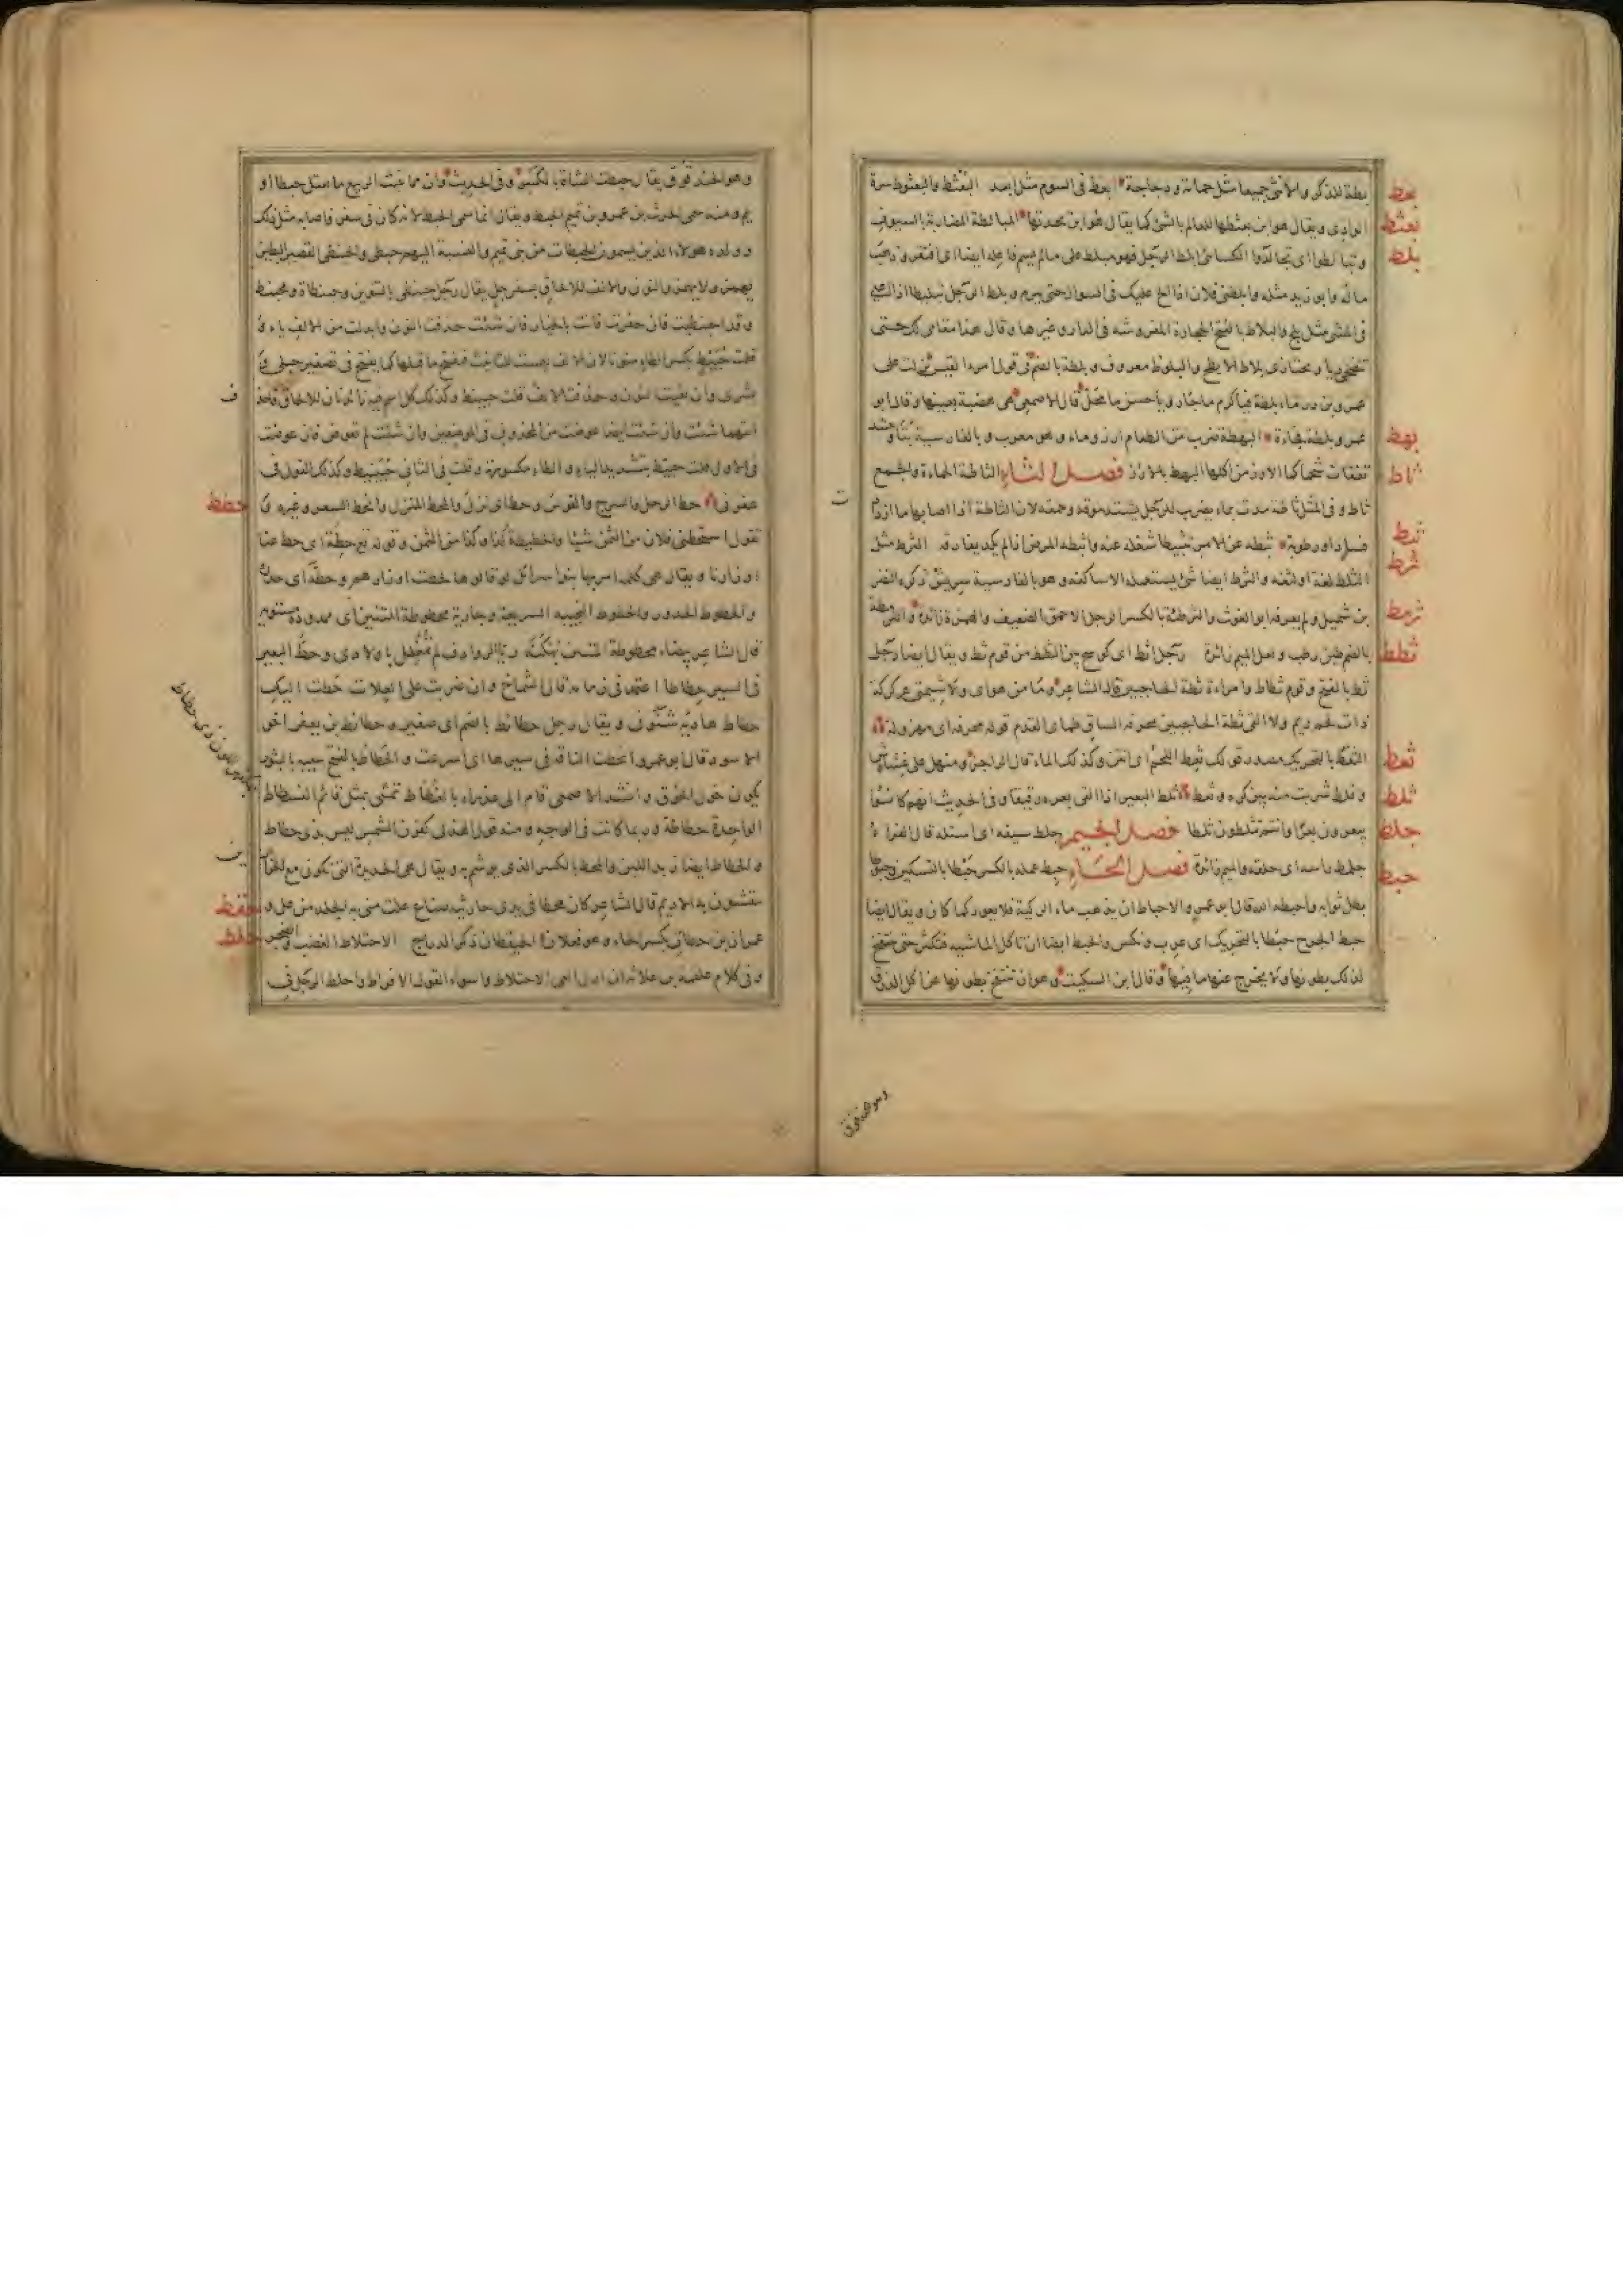 بعط
بطة للذكر والأنثى جميعا مثل حمامة ودجاجة بعط في السوم مثل ابعد البعثط والبعثوط سرة
بعثط
الوادي ويقال هو ابن بعثطها للعالم بالشئ كما يقال هو ابن بجدتها المبالطة المضاربة بالسيوف
بلط
وتبالطوا اي تجالدوا الكسائي ابلط الرجل فهو مبلط على ما لم يسم فاعله ايضا اي افتقر وذهب
ماله وابو زيد مثله وابلطني فلان اذا الح عليك في السوال حتى يبرم وبلط الرجل تبليطا اذا اعيى
في المشي مثل بلح والبلاط بالفتح الحجارة المفروشة في الدار وغيرها وقال هذا مقامي لك حتى
تنضحي ريا وتجتازي بلاط الابطح والبلوط معروف وبلطة بالضم في قول امرء القيس نزلت على
عمرو بن درماء بلطة فيا كرم ما جار ويا حسن ما محل قال الاصمعي هي هضبة بعينها وقال ابو
بهط
عمرو بلطة فجاءة البهطة ضرب من الطعام ارز وماء وهو معرب وبالفارسية بتا وينشد
ثاط
تفقات شحما كما الاوز من اكلها البهط بالارز فصل الثاء الثاطة الحماءة والجمع
ثاط وفي المثل ثاطة مدت بماء يضرب للرجل يشتد موقه وحمقه لان الثاطة اذا اصابها الماء ازدادت
ثبط
فسادا ورطوبة ثبطه عن الامر تثبيطا شغله عنه واثبطه المرض اذا لم يكد يفارقه الثرط مثل
ثرط
الثلط لغة او لثغة والثرط ايضا شئ يستعمله الاساكفة وهو بالفارسية سريش ذكره النضر
ثرمط
بن شميل ولم يعرفه ابو الغوث والثرطئة بالكسر الرجل الاحمق الضعيف والهمزة زائدة والثرمطة
ثطط
بالضم طين رطب ولعل الميم زائدة رجل اثط اي كوسج بين الثطط من قوم ثط ويقال ايضا رجل
ثط بالفتح وقوم ثطاط وامراءة ثطة الحاجبين قال الشاعر وما من هواي ولا شيمتي عركركة
ذات لحم زيم ولا القى ثطة الحاجبين محرفة الساق ظماى القدم قوله محرفة اي مهزولة
ثعط
الثعط بالتحريك مصدر قولك ثعط اللحم اي انتن وكذلك الماء قال الراجز ومنهل على غشاش
ثلط
وفلط شربت منه بين كره وثعط ثلط البعير اذا القى بعره رقيقا وفي الحديث انهم كانوا
جلط
يبعرون بعرا وانتم تثلطون ثلطا فصل الجيم جلط سيفه اي استله قال الفراء
حبط
جلمط راسه اي حلقه والميم زائدة فصل الحاء حبط عمله بالكسر حبطا بالتسكين وحبوطا
بطل ثوابه واحبطه الله قال ابو عمرو والاحباط ان يذهب ماء الركية فلا يعود كما كان ويقال ايضا
حبط الجرح حبطا بالتحريك اي عرب ونكس والحبط ايضا ان تاكل الماشية فتكثر حتى تنتفخ
لذلك بطونها ولا يخرج عنها ما فيها وقال ابن السكيت هو ان تنتفخ بطونها عن اكل الذرق
وهو الحندقوق
وهو الحندقوق يقال حبطت الشاة بالكسر وفي الحديث وان مما ينبت الربيع ما يقتل حبطا او
يلم ومنه سمي الحرث بن عمرو بن تميم الحبط ويقال انما سمي الحبط لانه كان في سفر فاصابه مثل ذلك
وولده هولاء الذين يسمون الحبطات من بني تميم والنسبة اليهم حبطي والحبنطى القصير البطين
يهمز ولا يهمز والنون والالف للالحاق بسفرجل يقال رجل حبنطى بالتنوين وحبنطاة ومحبنط
وقد احبنطيت فان حقرت فانت بالخيار فان شئت حذفت النون وابدلت من الالف ياء و
قلت حبيط بكسر الطاء منونا لان الالف ليست للتانيث فيفتح ما قبلها كما يفتح في تصغير حبلى و
ف
بشرى وان بقيت النون وحذفت الالف قلت حبينط وكذلك كل اسم فيه زائدتان للالحاق فاحذف
ايتهما شئت وان شئت ايضا عوضت من المحذوف في الموضعين وان شئت لم تعوض فان عوضت
في الاول قلت حبيط بتشديد الياء والطاء مكسورة وقلت في الثاني حبينيط وكذلك القول في
حطط
عفرنى حط الرحل والسرج والقوس وحط اي نزل والمحط المنزل وانحط السعر وغيره و
ت
تقول استحطني فلان من الثمن شيئا والحطيطة كذا وكذا من الثمن وقوله تع حطة اي حط عنا
اوزارنا ويقال هي كلمة امر بها بنوا سرائل لو قالوها لحطت اوزارهم وحطه اي حدره
والحطوط الحدور والحطوط النجيبة السريعة وجارية محطوطة المتنين اي ممدودة مستوية
قال الشاعر بيضاء محطوطة المتنين بهكنة ريا الروادف لم تمغل باولاد وحط البعير
في السير حطاطا اعتمد في زمامه قال الشماخ وان ضربت على العلات حطت اليك
حطاط هادية شنون ويقال رجل حطائط بالضم اي صغير وحطائط بن يعفر اخو
الاسود قال ابو عمرو انحطت الناقة في سيرها اي اسرعت والحطاط بالفتح شبيه بالبثور
يكون حول الحوق وانشد الاصمعي قام الى عذراء بالغطاط تمشي بمثل قائم الفسطاط
الواحدة حطاطة وربما كانت في الوجه ومنه قول الهذلي كقرن الشمس ليس بذي حطاط
والحطاط ايضا زبد اللبن والمحط بالكسر الذي يوشم به ويقال هي الحديدة التي تكون مع الخرازين
ين
حفط
ينقشون بها الاديم قال الشاعر كان محطا في يدي حارثية صناع علت مني به الجلد من عل و
حلط
عمران بن حطان بكسر الحاء وهو فعلان الحيقطان ذكر الدراج الاحتلاط الغضب والضجر
وفي كلام علقمة بن علاثة ان اول العي الاحتلاط واسوء القول الافراط واحلط الرجل في